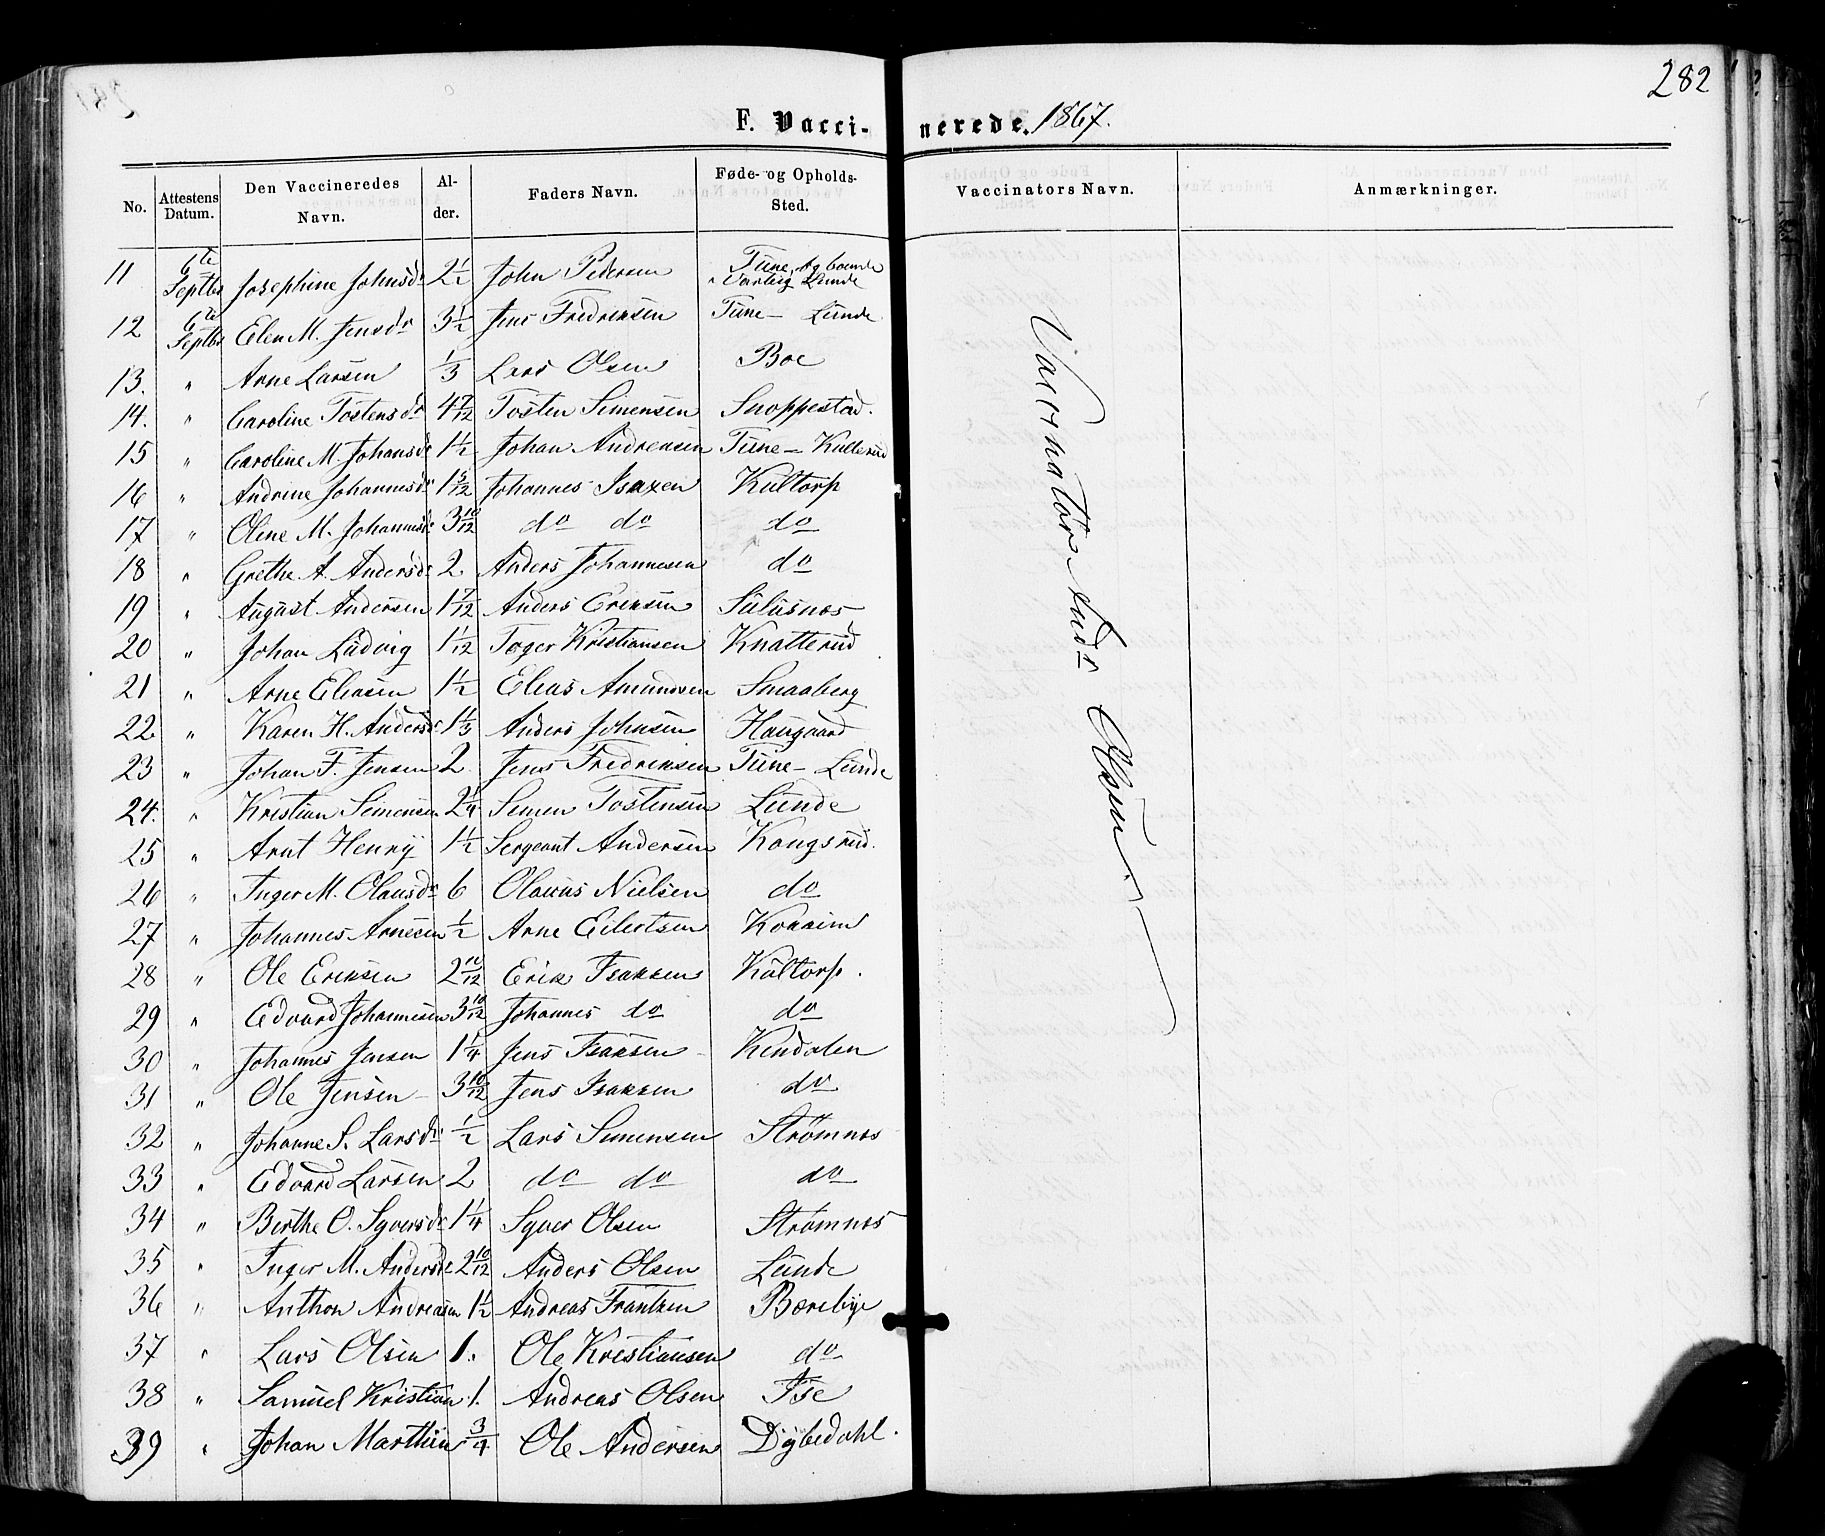 282
F. Vaccinerede. 1867.
No. Attestens Datum. Den Vaccineredes Navn. Alder. Faders Navn. Føde- og Opholds-Sted. Vaccinators Navn. Anmærkninger.
11 6te Septbr Josephine Johnsdr 2 1/2 John Pedersen Tune, Lunde
12 6te Septbr Elen M. Jensdr 3 1/2 Jens Fredriksen Tune – Lunde
13. " Arne Larsen 1/3 Lars Olsen Boe
14. " Caroline Tostensdr 4 7/12 Tosten Simensen Snoppestad.
15 " Caroline M. Johansdr 1 1/2 Johan Andreasen Tune – Kullerud
16 " Andrine Johannesdr 1 5/12 Johannes Isaxen Kultorp
17 " Oline M. Johannesdr 3 10/12 do do do
18 " Grethe A. Andersdr 2 Anders Johannesen do
19 " August Andersen 1 7/12 Anders Eriksen
20 " Johan Ludvig 1 1/12 Kristiansen Knatterud
21 " Arne Eliasen 1 1/2 Elias Amundsen Smaaberg
22 " Karen H. Andersdr 1 1/3 Anders Johnsen Haugaard
23 " Johan F. Jensen 2 Jens Fredriksen Tune – Lunde
24. " Kristian Simensen 2 1/4 Simen Tostensen Lunde
25 " Arnt Henry 1 1/2 Sergeant Andersen Kongsrud.
26 " Inger M. Olausdr 6 Olaves Nielsen do
27 " Johannes Arnesen 1/2 Arne Eilertsen
28 " Ole Eriksen 2 10/12 Erik Isaksen Kultorp.
29 " Edvard Johannesen 3 10/12 Johannes do do
30 " Johannes Jensen 1 1/4 Jens Isaksen Kindalen
31 " Ole Jensen 3 10/12 Jens Isaksen do
32 " Johanne S. Larsdr 1/2 Lars Simensen Strømnes
33 " Edvard Larsen 2 do do do
34 " Berthe O. Syversdr 1 1/4 Syver Olsen Strømnes
35 " Inger M. Andersdr 2 10/12 Anders Olsen Lunde
36 " Anthon Andreasen 1 1/2 Andreas Frantzen Bærebye
37 " Lars Olsen 1. Ole Kristiansen do
38 " Samuel Kristian 1. Andreas Olsen Ise
39 " Johan Marthin 3/4 Ole Andersen Dybedahl.
Vaccinatør Andr Olsen